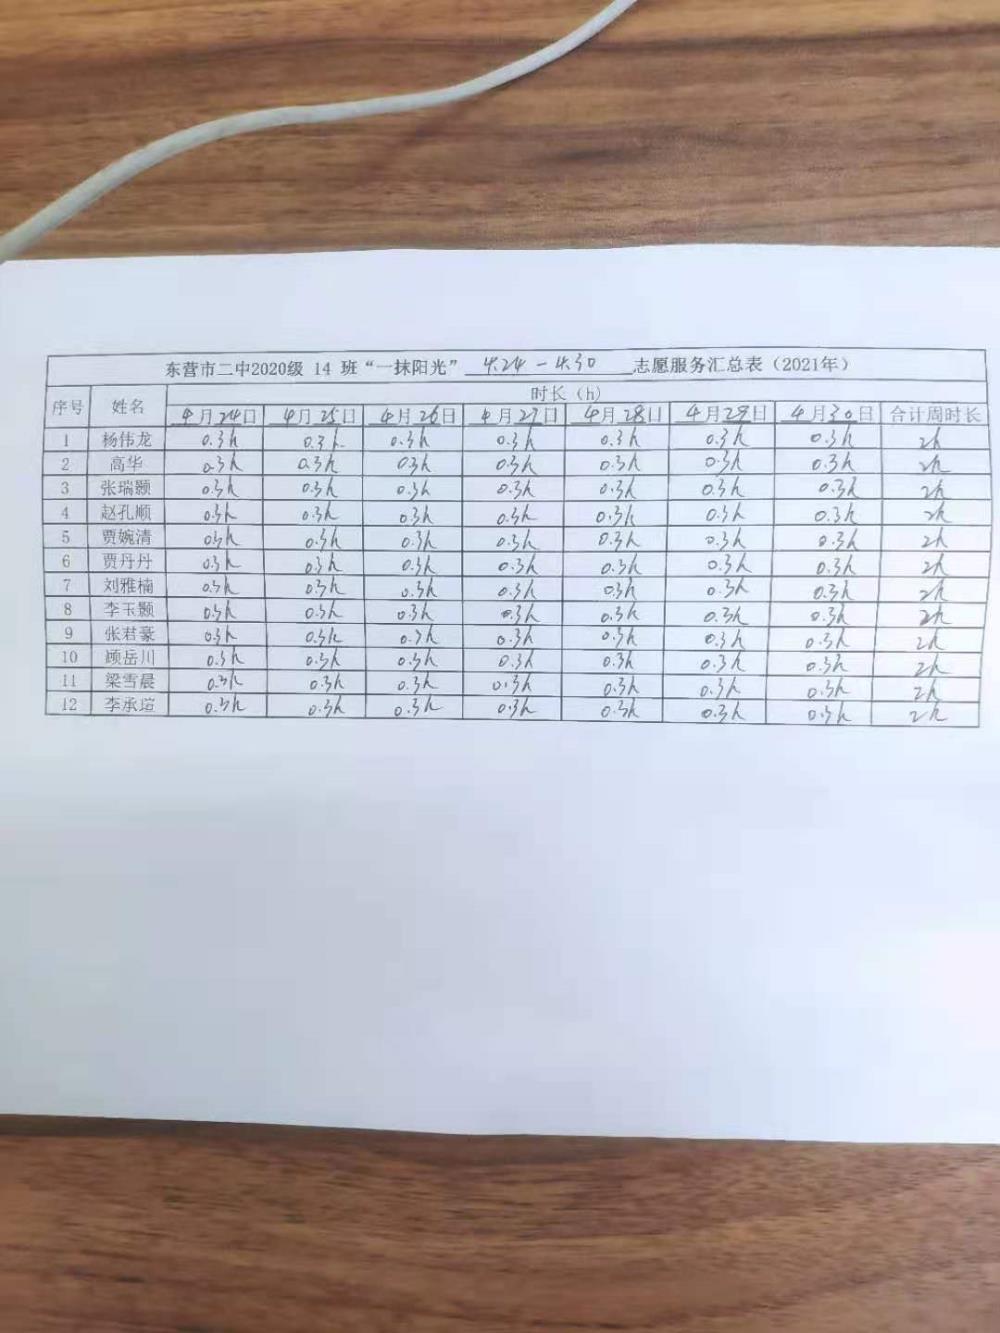 东营市二中2020级 14 班“一抹阳光” 4.24-4.30 志愿服务汇总表（2021年）
序号 姓名 时长（h）
4月24日 4月25日 4月26日 4月27日 4月28日 4月29日 4月30日 合计周时长
1 杨伟龙 0.3h 0.3h 0.3h 0.3h 0.3h 0.3h 0.3h 2h
2 高华 0.3h 0.3h 0.3h 0.3h 0.3h 0.3h 0.3h 2h
3 张瑞颢 0.3h 0.3h 0.3h 0.3h 0.3h 0.3h 0.3h 2h
4 赵孔顺 0.3h 0.3h 0.3h 0.3h 0.3h 0.3h 0.3h 2h
5 贾婉清 0.3h 0.3h 0.3h 0.3h 0.3h 0.3h 0.3h 2h
6 贾丹丹 0.3h 0.3h 0.3h 0.3h 0.3h 0.3h 0.3h 2h
7 刘雅楠 0.3h 0.3h 0.3h 0.3h 0.3h 0.3h 0.3h 2h
8 李玉颢 0.3h 0.3h 0.3h 0.3h 0.3h 0.3h 0.3h 2h
9 张君豪 0.3h 0.3h 0.3h 0.3h 0.3h 0.3h 0.3h 2h
10 顾岳川 0.3h 0.3h 0.3h 0.3h 0.3h 0.3h 0.3h 2h
11 梁雪晨 0.3h 0.3h 0.3h 0.3h 0.3h 0.3h 0.3h 2h
12 李承瑄 0.3h 0.3h 0.3h 0.3h 0.3h 0.3h 0.3h 2h